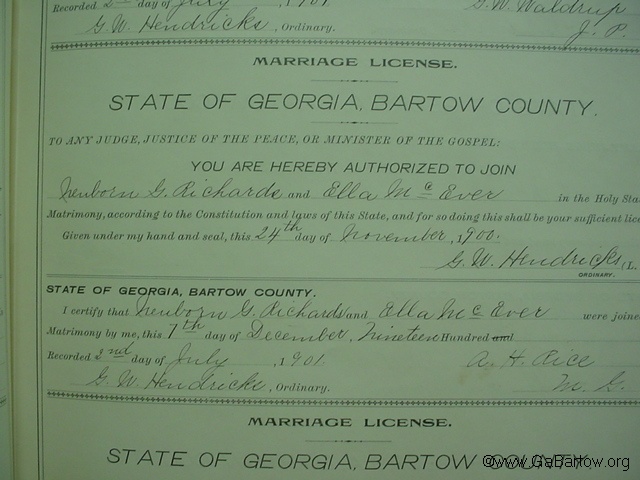 Recorded 2nd day of July, 1901 G. W. Waldrup
G. W. Hendricks, Ordinary. J. P.
MARRIAGE LICENSE.
STATE OF GEORGIA, BARTOW COUNTY.
TO ANY JUDGE, JUSTICE OF THE PEACE, OR MINISTER OF THE GOSPEL:
YOU ARE HEREBY AUTHORIZED TO JOIN
G. Richards and Ella Mc Ever in the Holy Sta
Matrimony, according to the Constitution and laws of this State, and for so doing this shall be your sufficient lice
Given under my hand and seal, this 24th day of November, 1900.
G. W. Hendricks (L.
ORDINARY.
STATE OF GEORGIA, BARTOW COUNTY.
I certify that G. Richards and Ella Mc Ever were joine
Matrimony by me, this 7th day of December, Nineteen Hundred and
Recorded 2nd day of July, 1901 A. H. Rice
G. W. Hendricks, Ordinary. M. G.
MARRIAGE LICENSE.
STATE OF GEORGIA, BARTOW COUNTY.
©www.GaBartow.org